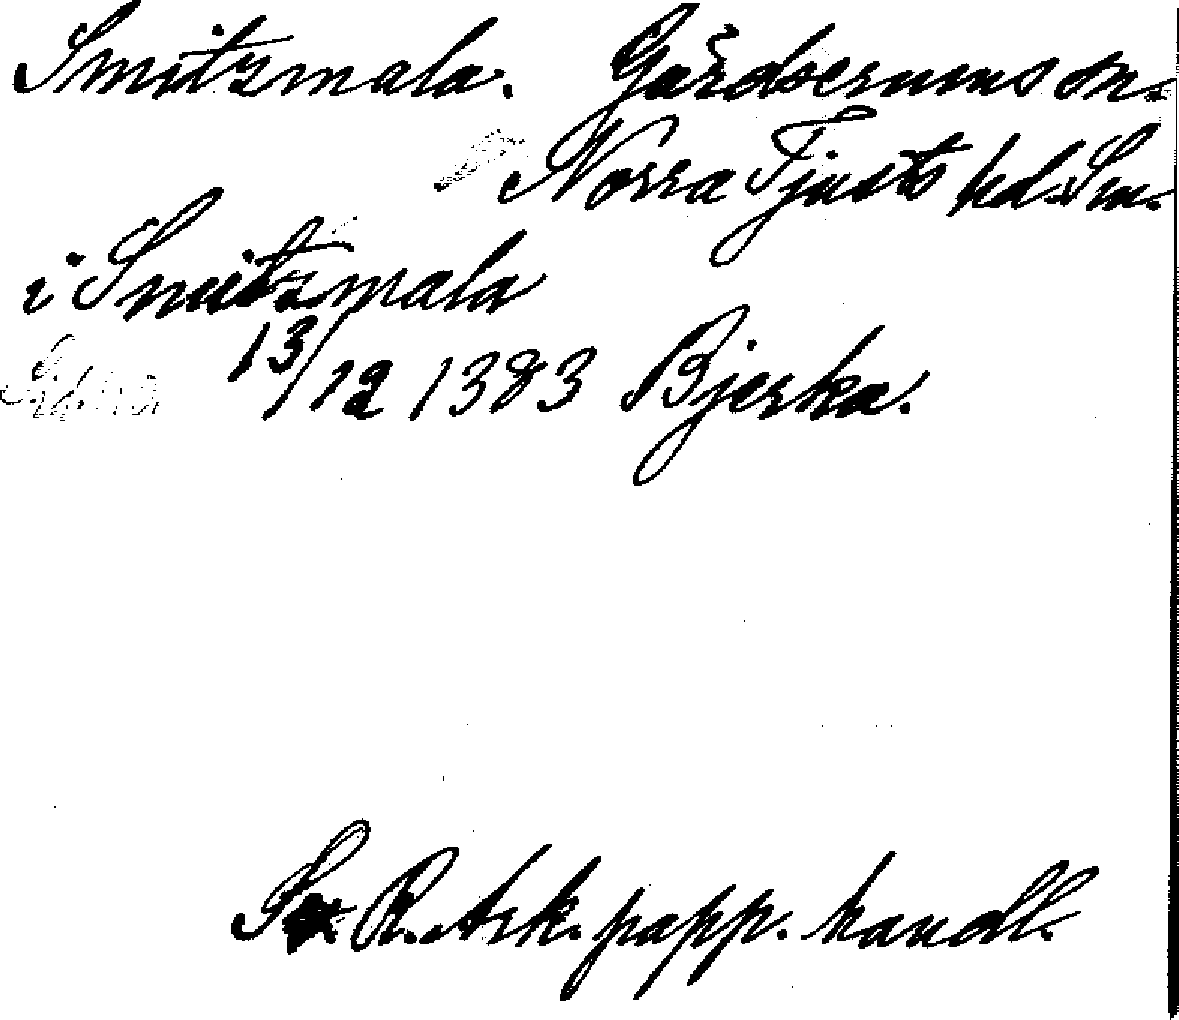 Smitzmala. Gårdserums sn.
Norra Tjusts hd. Sm.
i Smitzmala
13/12 1383 Bjerka.
Sv. R. Ark. papp. handl.